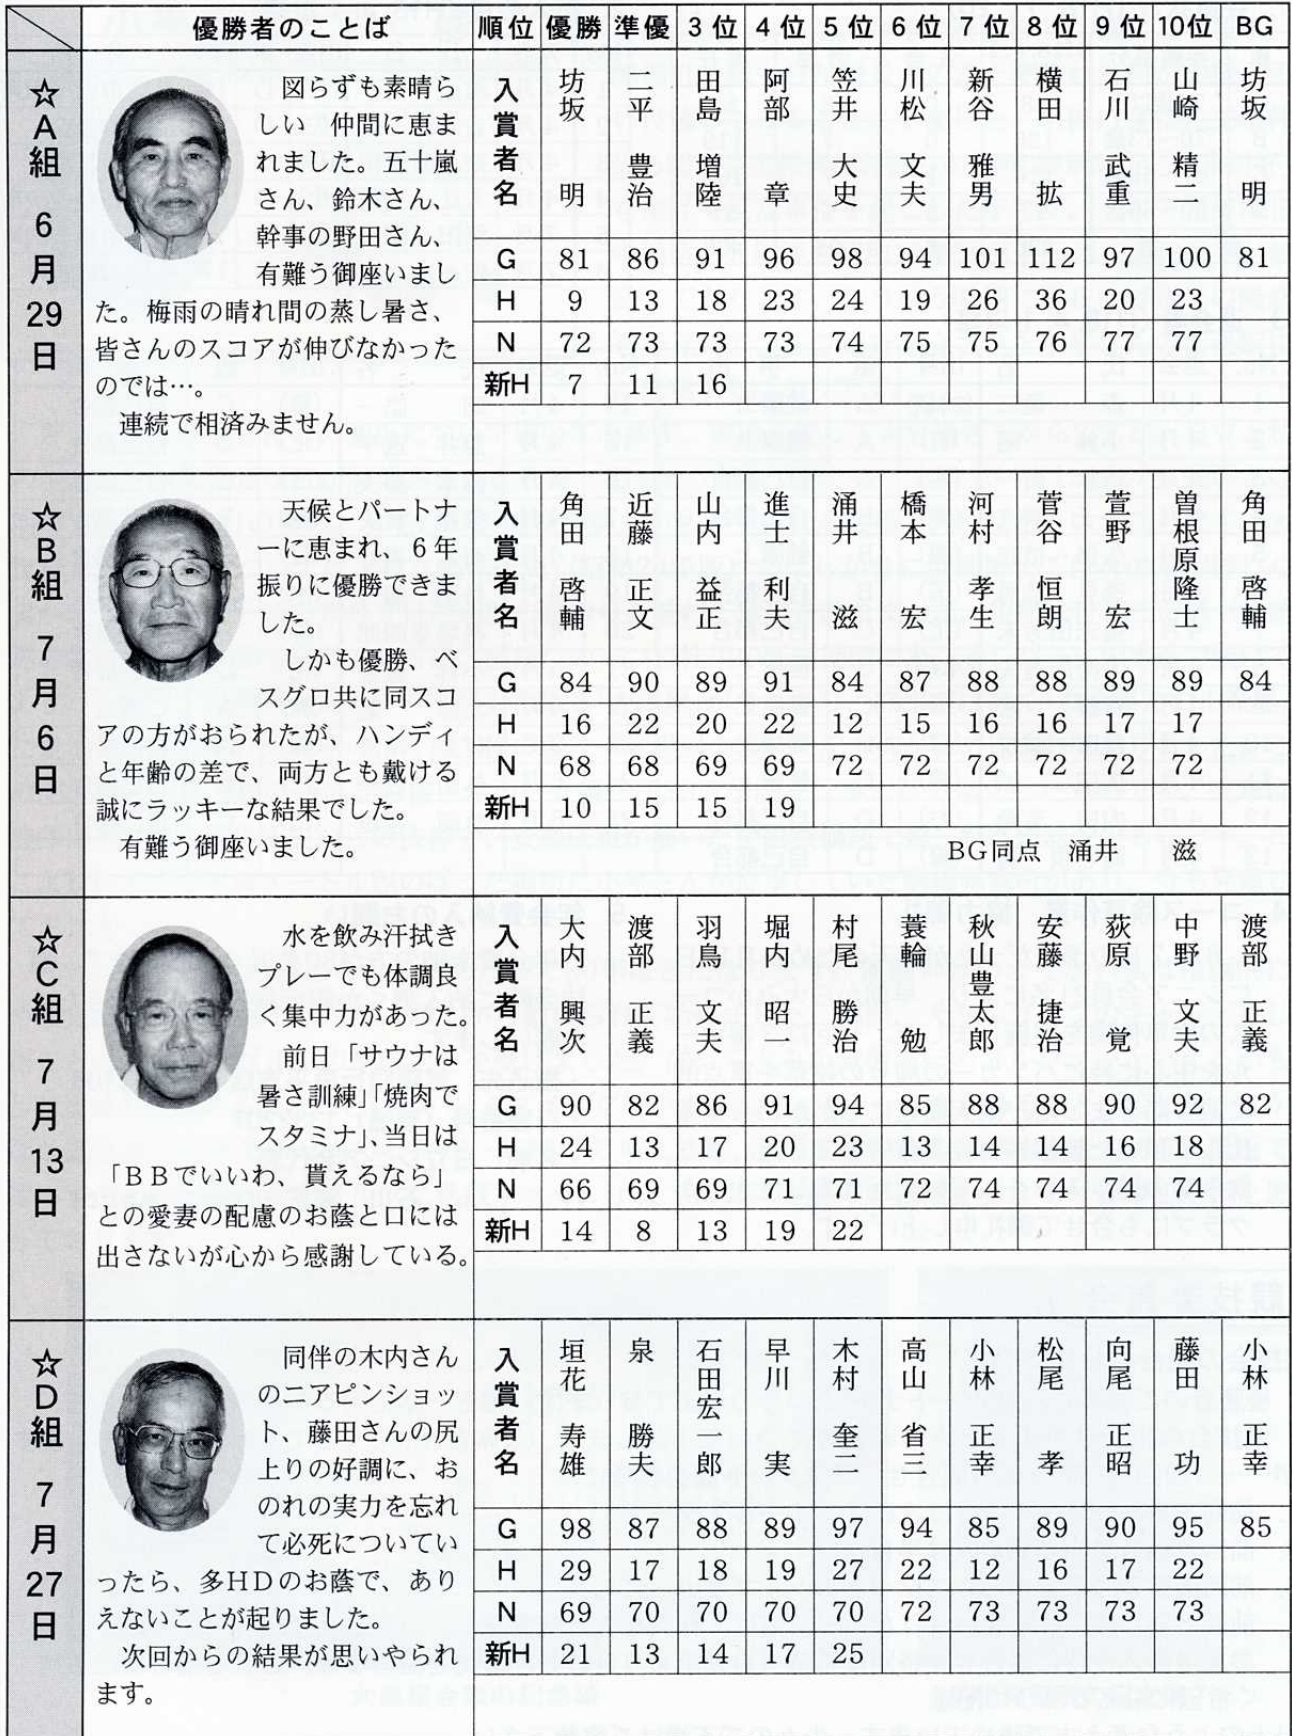 優勝者のことば 順位 優勝 準優 3位 4位 5位 6位 7位 8位 9位 10位 BG
☆A組 6月29日
図らずも素晴ら
しい 仲間に恵ま
れました。五十嵐
さん、鈴木さん、
幹事の野田さん、
有難う御座いまし
た。梅雨の晴れ間の蒸し暑さ、
皆さんのスコアが伸びなかった
のでは…。
連続で相済みません。
入賞者名 坊坂 明 二平 豊治 田島 増陸 阿部 章 笠井 大史 川松 文夫 新谷 雅男 横田 拡 石川 武重 山崎 精二 坊坂 明
G 81 86 91 96 98 94 101 112 97 100 81
H 9 13 18 23 24 19 26 36 20 23
N 72 73 73 73 74 75 75 76 77 77
新H 7 11 16
☆B組 7月6日
天候とパートナ
ーに恵まれ、6年
振りに優勝できま
した。
しかも優勝、ベ
スグロ共に同スコ
アの方がおられたが、ハンディ
と年齢の差で、両方とも戴ける
誠にラッキーな結果でした。
有難う御座いました。
入賞者名 角田 啓輔 近藤 正文 山内 益正 進士 利夫 涌井 滋 橋本 宏 河村 孝生 菅谷 恒朗 萱野 宏 曽根原隆士 角田 啓輔
G 84 90 89 91 84 87 88 88 89 89 84
H 16 22 20 22 12 15 16 16 17 17
N 68 68 69 69 72 72 72 72 72 72
新H 10 15 15 19
BG同点 涌井 滋
☆C組 7月13日
水を飲み汗拭き
プレーでも体調良
く集中力があった。
前日「サウナは
暑さ訓練」「焼肉で
スタミナ」、当日は
「BBでいいわ、貰えるなら」
との愛妻の配慮のお蔭と口には
出さないが心から感謝している。
入賞者名 大内 興次 渡部 正義 羽鳥 文夫 堀内 昭一 村尾 勝治 蓑輪 勉 秋山豊太郎 安藤 捷治 荻原 覚 中野 文夫 渡部 正義
G 90 82 86 91 94 85 88 88 90 92 82
H 24 13 17 20 23 13 14 14 16 18
N 66 69 69 71 71 72 74 74 74 74
新H 14 8 13 19 22
☆D組 7月27日
同伴の木内さん
のニアピンショッ
ト、藤田さんの尻
上りの好調に、お
のれの実力を忘れ
て必死についてい
ったら、多HDのお蔭で、あり
えないことが起りました。
次回からの結果が思いやられ
ます。
入賞者名 垣花 寿雄 泉 勝夫 石田宏一郎 早川 実 木村 奎二 高山 省三 小林 正幸 松尾 孝 向尾 正昭 藤田 功 小林 正幸
G 98 87 88 89 97 94 85 89 90 95 85
H 29 17 18 19 27 22 12 16 17 22
N 69 70 70 70 70 72 73 73 73 73
新H 21 13 14 17 25